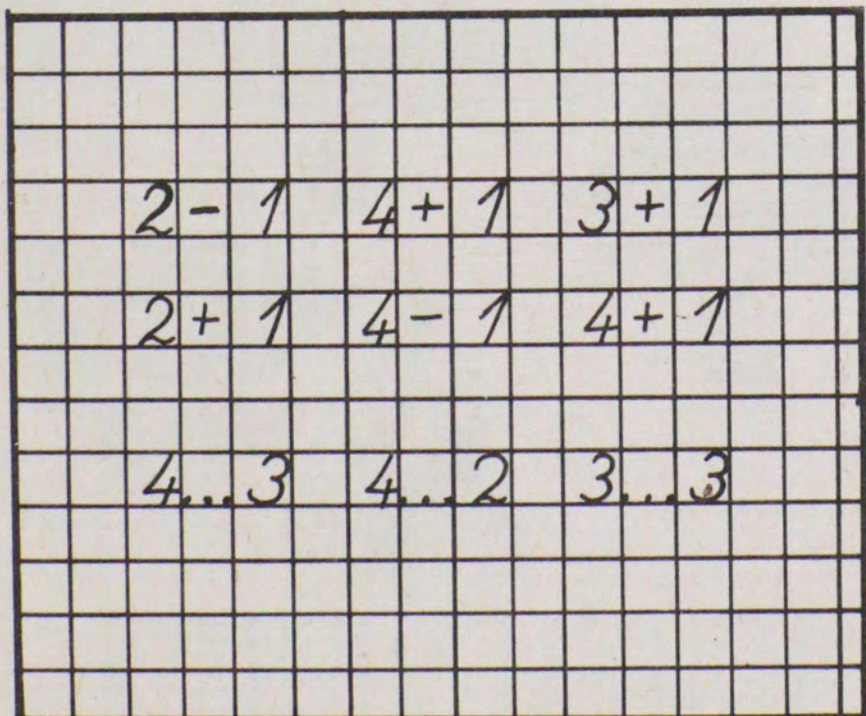 2 - 1 4 + 1 3 + 1
2 + 1 4 - 1 4 + 1
4...3 4...2 3...3